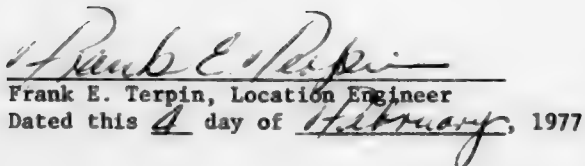 Frank E. Terpin
Frank E. Terpin, Location Engineer
Dated this 4 day of February, 1977